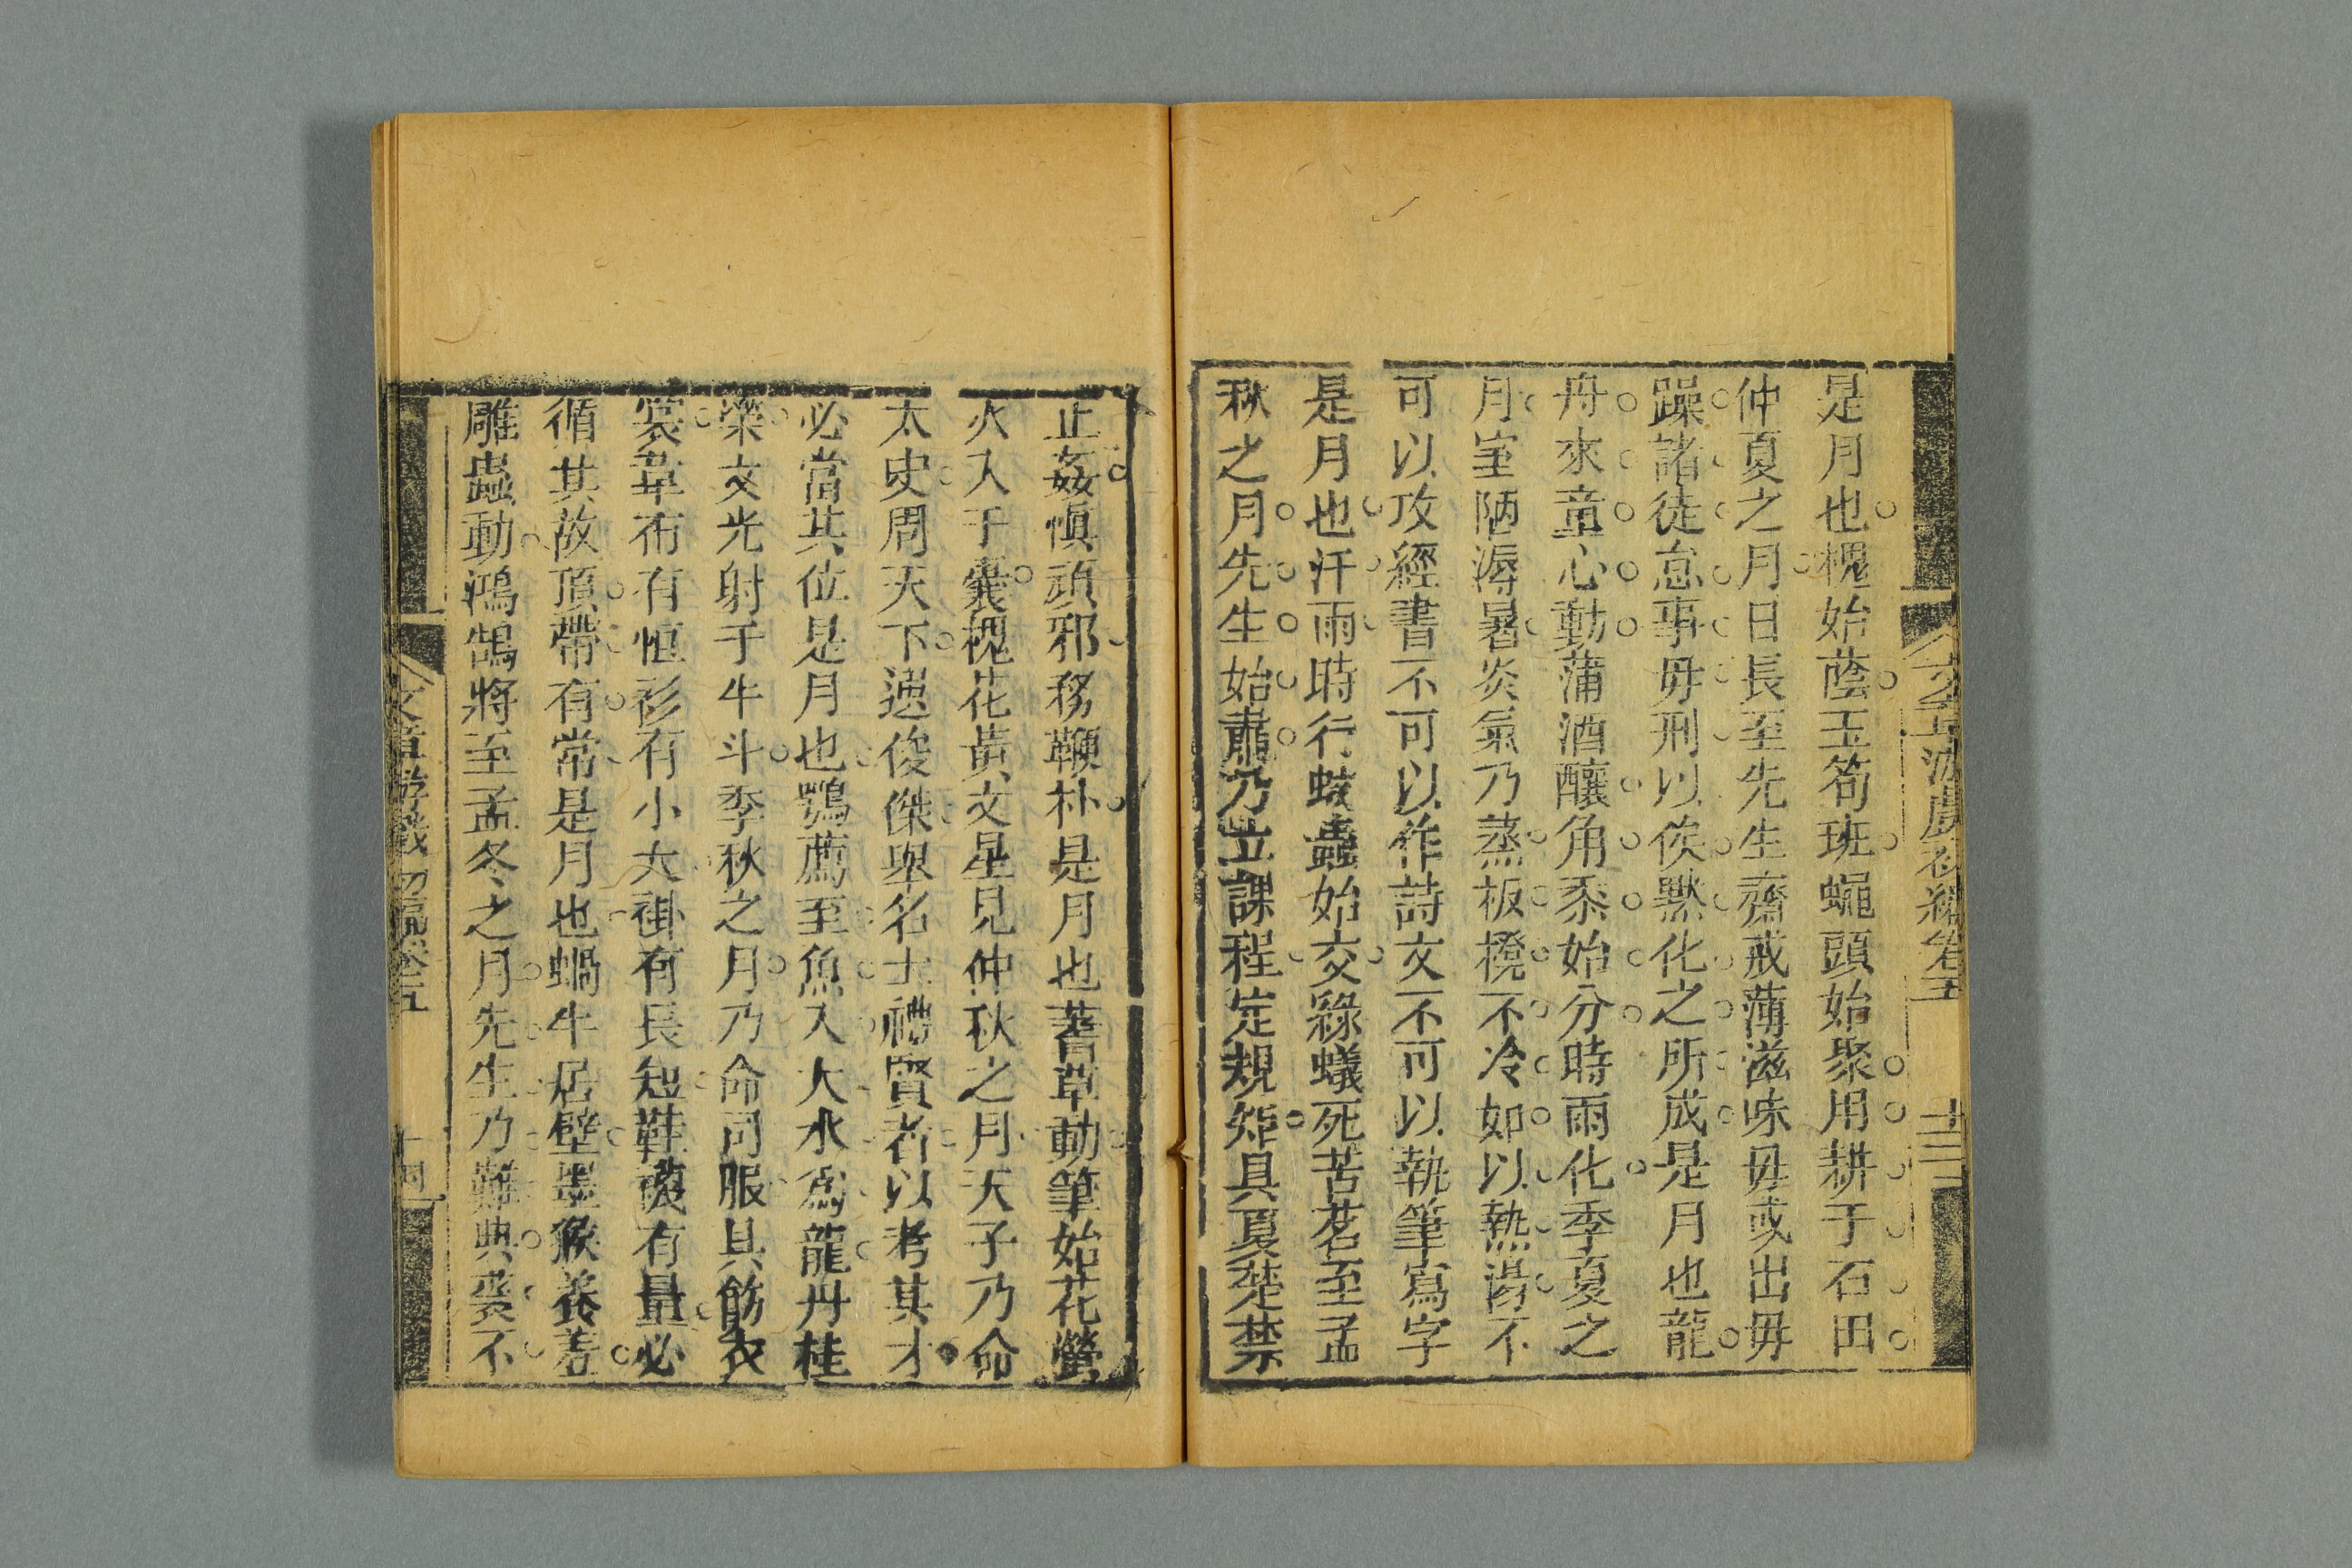 是月也槐始蔭玉筍班蠅頭始聚用耕于石田
仲夏之月日長至先生齋戒薄滋味毋或出毋
躁諸徒怠事毋刑以俟默化之所成是月也龍
舟來童心動蒲酒釀角黍始分時雨化季夏之
月室陋溽暑炎氣乃蒸板櫈不冷如以熱湯不
可以攻經書不可以作詩文不可以執筆寫字
是月也汗雨時行蚊蠱始交綠蟻死苦茗至孟
秋之月先生始肅乃立課程定規矩具夏楚禁
止姦愼頑邪務鞭朴是月也蓍草動筆始花螢
火入于囊槐花黃文星見仲秋之月天子乃命
太史周天下選俊傑舉名士禮賢者以考其才
必當其位是月也鶚薦至魚入大水爲龍丹桂
榮文光射于牛斗季秋之月乃命司服具飭衣
裳韋布有恒衫有小大褂有長短鞋襪有量必
循其故頂帶有常是月也蝸牛居壁墨猴養羞
雕蟲動鴻鵠將至孟冬之月先生乃難典裘不
文章游戲 初編卷五